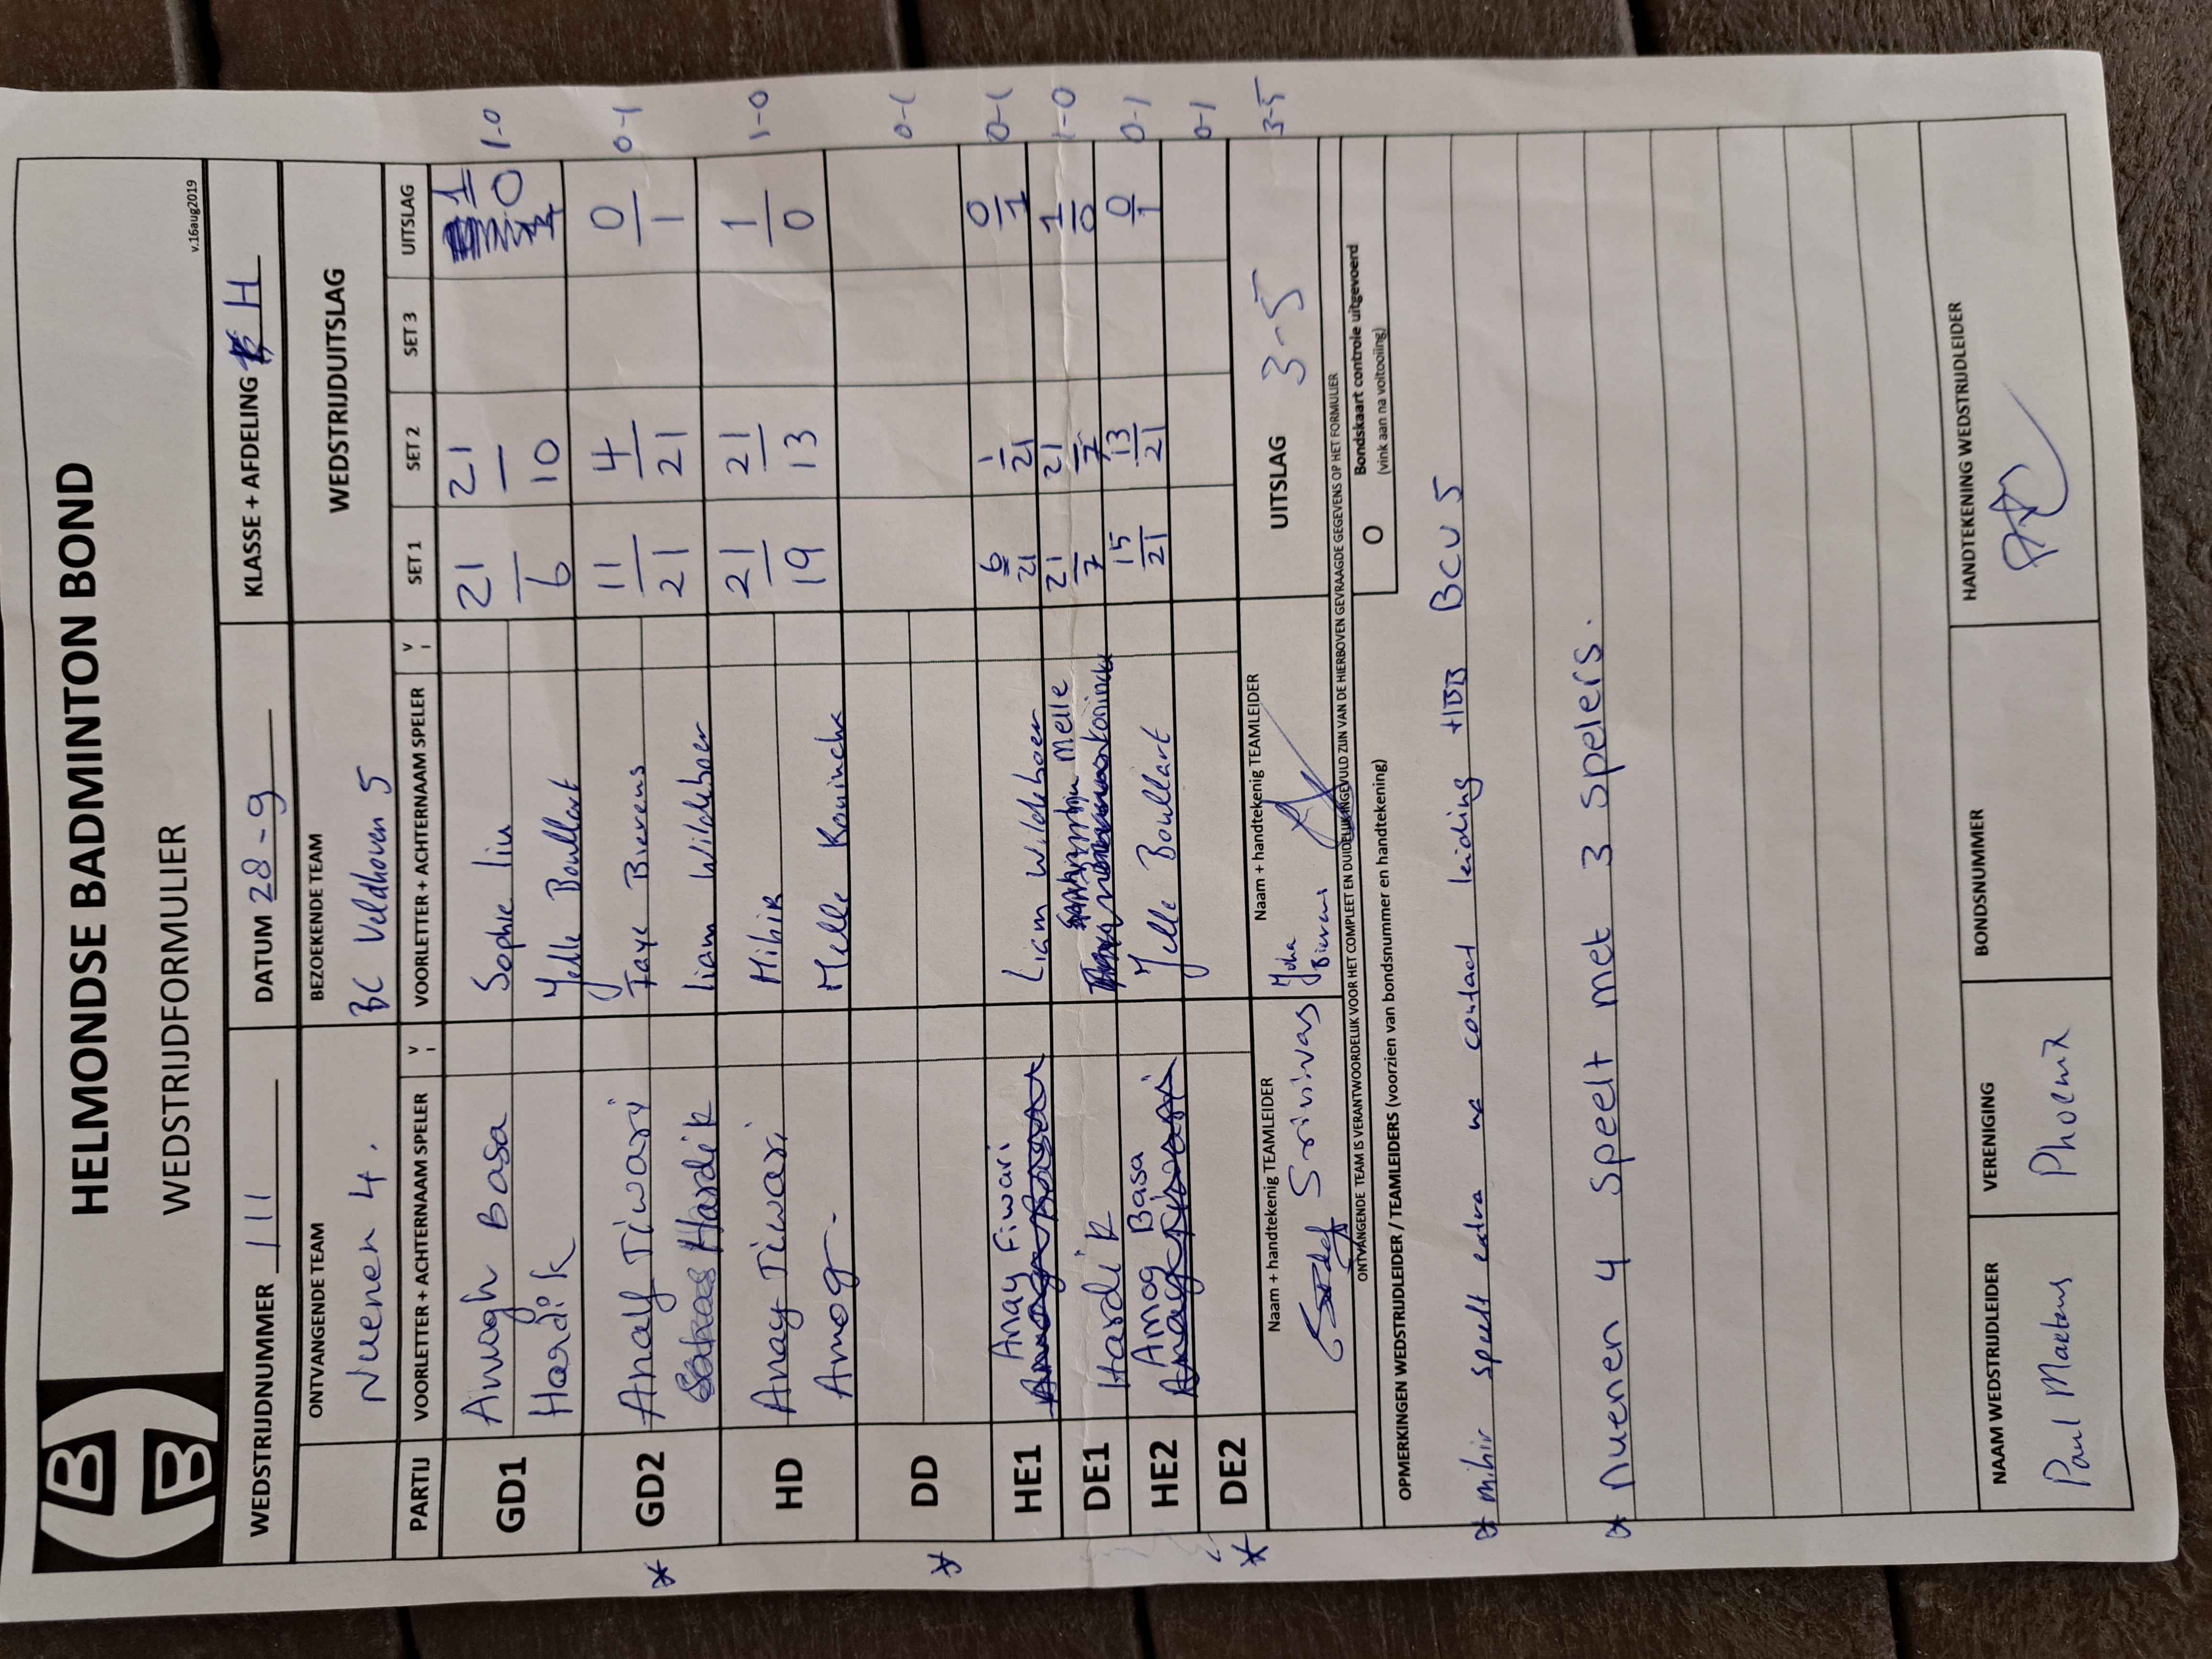 HELMONDSE BADMINTON BOND
WEDSTRIJDFORMULIER
v.16aug2019
WEDSTRIJDNUMMER 111 DATUM 28-9 KLASSE + AFDELING H
ONTVANGENDE TEAM BEZOEKENDE TEAM WEDSTRIJDUITSLAG
Nuenen 4. BC Veldhoven 5
PARTIJ VOORLETTER + ACHTERNAAM SPELER V I VOORLETTER + ACHTERNAAM SPELER V I SET 1 SET 2 SET 3 UITSLAG
GD1 Amogh Basa Sophie Liu 21 21 1 1-0
Hardik Jelle Boullart 6 10 0
* GD2 Analf Tiwari Faye Bierens 11 4 0 0-1
Hardik Liam Wildeboer 21 21 1
HD Anay Tiwari Mihir 21 21 1 1-0
Amog. Melle Koninckx 19 13 0
* DD 0-1
HE1 Anay Fiwari Liam Wildeboer 6/21 1/21 0/1 0-1
DE1 Hardik Melle Koninckx 21/7 21/7 1/0 1-0
HE2 Amog Basa Jelle Boullart 15/21 13/21 0/1 0-1
* DE2 0-1
Naam + handtekenig TEAMLEIDER Naam + handtekenig TEAMLEIDER UITSLAG 3-5 3-5
Srinivas Joha Bierens
ONTVANGENDE TEAM IS VERANTWOORDELIJK VOOR HET COMPLEET EN DUIDELIJK INGEVULD ZIJN VAN DE HIERBOVEN GEVRAAGDE GEGEVENS OP HET FORMULIER
O Bondskaart controle uitgevoerd
(vink aan na voltooiing)
OPMERKINGEN WEDSTRIJDLEIDER / TEAMLEIDERS (voorzien van bondsnummer en handtekening)
* mihir speelt extra na contact leiding HBB BCV 5
* Nuenen 4 speelt met 3 spelers.
NAAM WEDSTRIJDLEIDER VERENIGING BONDSNUMMER HANDTEKENING WEDSTRIJDLEIDER
Paul Maetens Phoenix